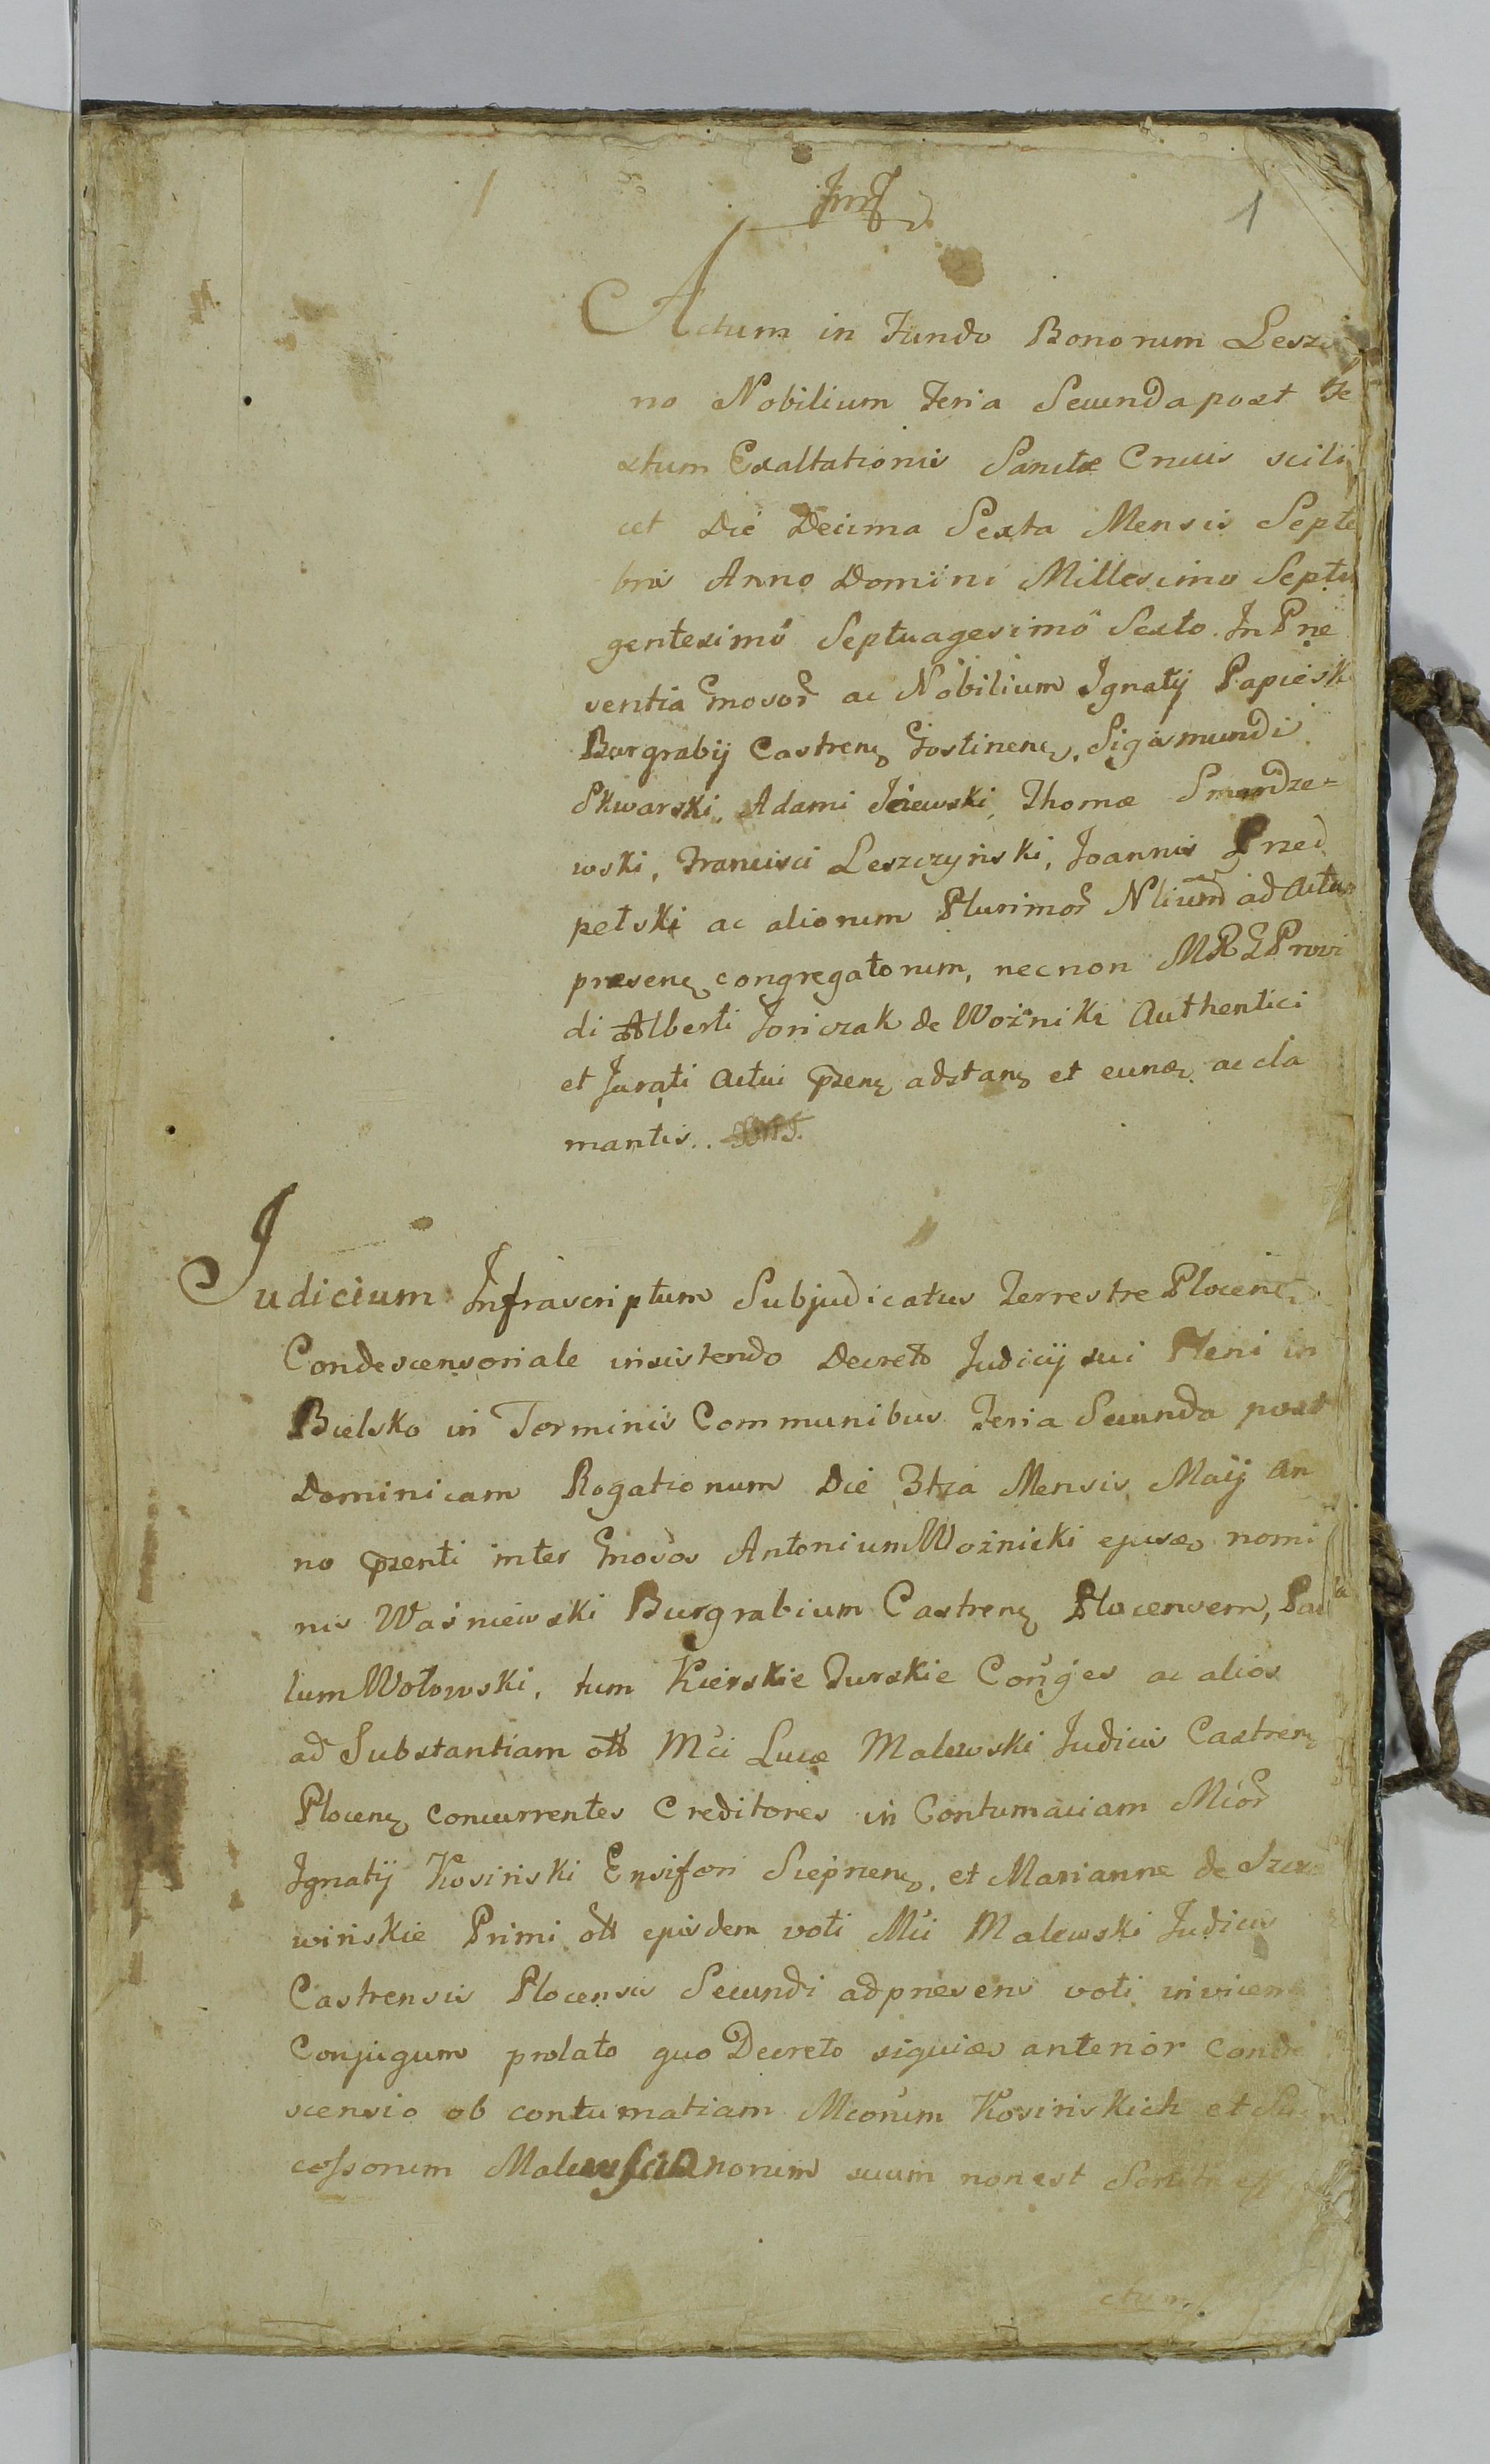 1
Actum in Fundo Bonorum Leszczy
no Nobilium Feria Secunda post Fe
stum Exaltationis Sanctæ Crucis scili
cet Die Decima Sexta Mensis Septe
bris Anno Domini Millesimo Septin
gentesimô Septuagesimô Sexto. In Præ
sentia Gnosor ac Nobilium Ignatij Papieski
Burgrabij Castrens Gostinens, Sigismundi
Skwarski, Adami Iżewski, Thomæ Smardze=
wski, Francisci Leszczyński, Joannis Przed
pełski ac aliorum Plurimor Nlium ad Actum
præsens congregatorum, necnon MRG Provi
di Alberti Jończak de Woźniki Authentici
et Jurati Actui præsens adstans et eund acla
mantis.
Judicium Infrascriptum Subjudicatus Terrestre Plocens
Condescensoriale insistendo Decreto Judicij sui Pleni in
Bielsko in Terminis Communibus Feria Secunda post
Dominicam Rogationum Die 3tia Mensis Maij An
no præsenti inter Gnosos Antonium Woźnicki ejusd nomi
nis Waśniewski Burgrabium Castrens Plocensem, Pau
lum Wołowski, tum Kierskie Turskie Conjges ac alios
ad Substantiam olim Mci Lucæ Malewski Judicis Castrens
Plocens concurrentes Creditores in Contumaciam Mcor
Ignatij Kosiński Ensiferi Sieprcens, et Marianne de Szcza
wińskie Primi olim ejusdem voti Mci Malewski Judicis
Castrensis Plocensis Secundi ad præsens voti invicem
Conjugum prolato quo Decreto siquid anterior conde
scensio ob contumatiam Mcorum Kosińskich et Suc
cessorum Malewscianorum suum non est Sortita effe
ctum.